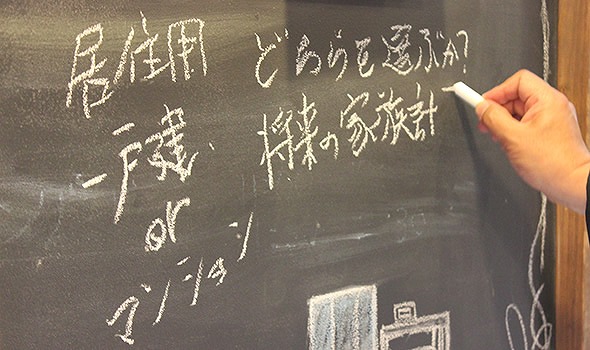 居住用
一戸建
or
マンション
どちらを選ぶか?
将来の家族計